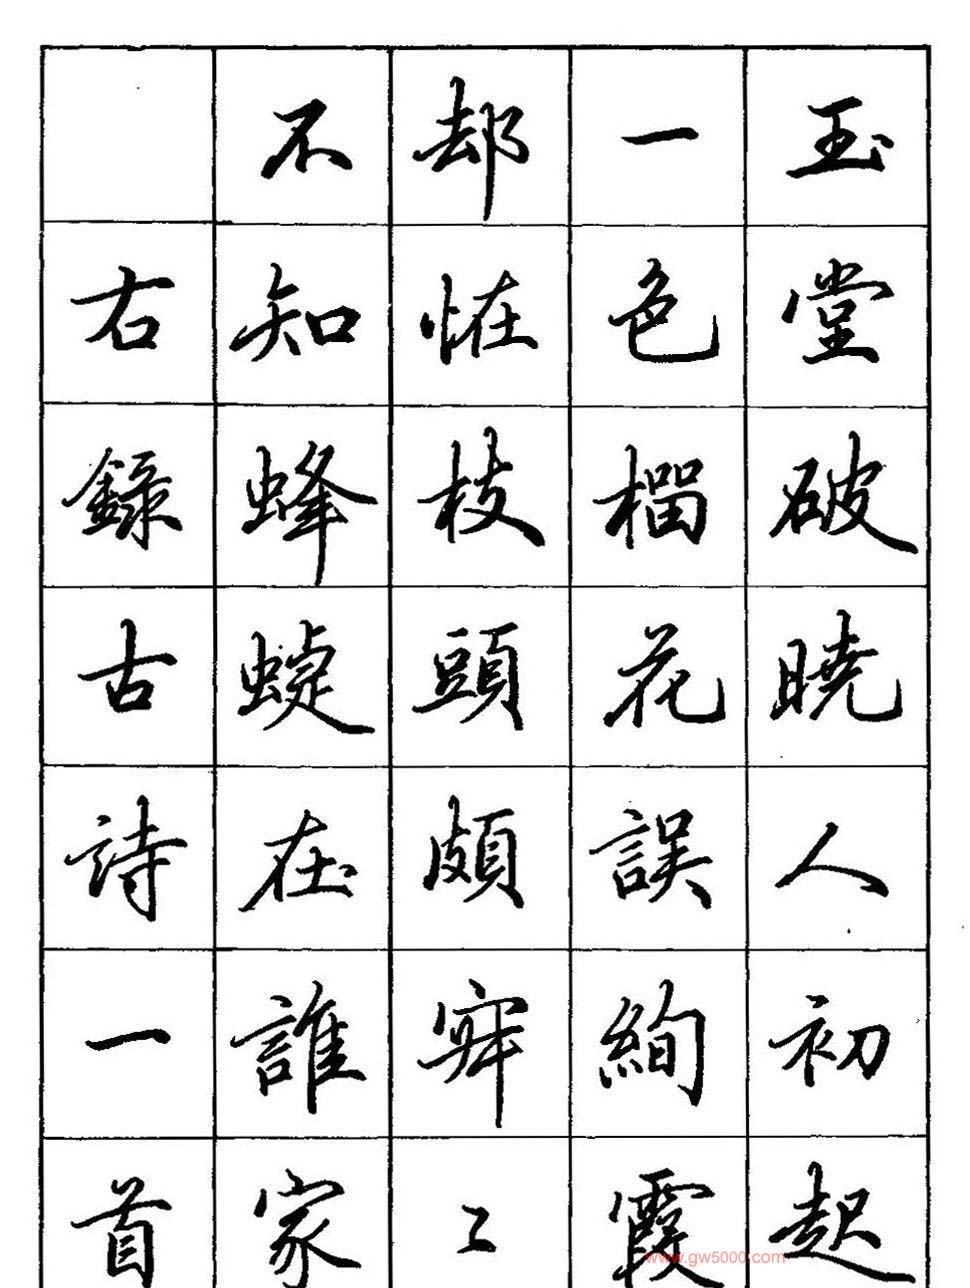 玉堂破曉人初起
一色榴花誤絢霞
却怪枝頭頗寂〻
不知蜂蝶在誰家
右錄古詩一首
www.gw5000.com